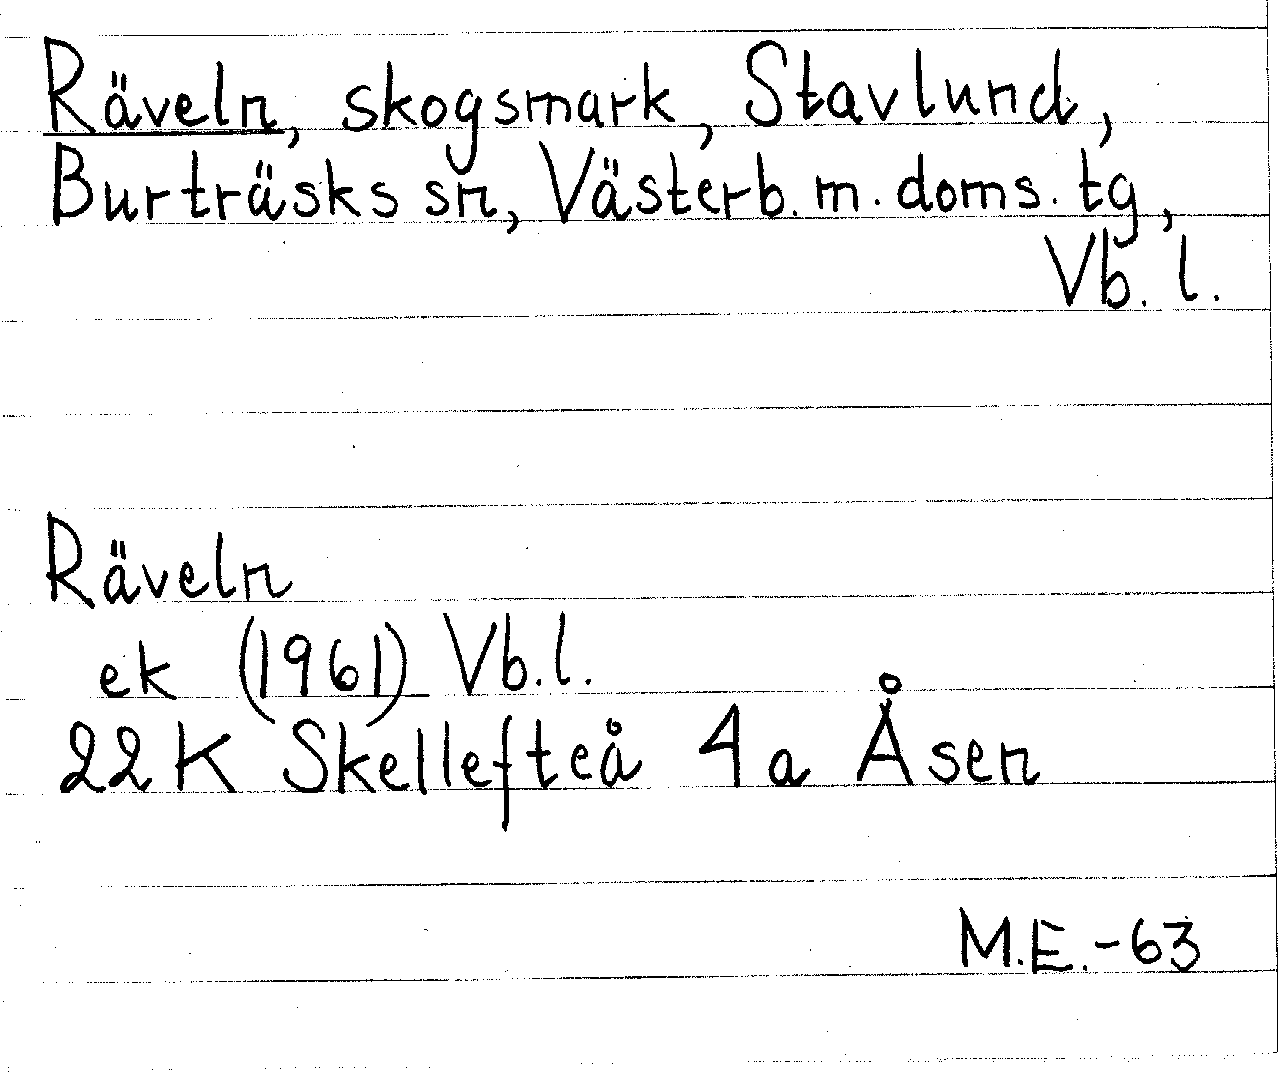 Räveln, skogsmark, Stavlund,
Burträsks sn, Västerb. m. doms. tg,
Vb. l.
Räveln
ek (1961) Vb. l.
22K Skellefteå 4a Åsen
M.E.-63